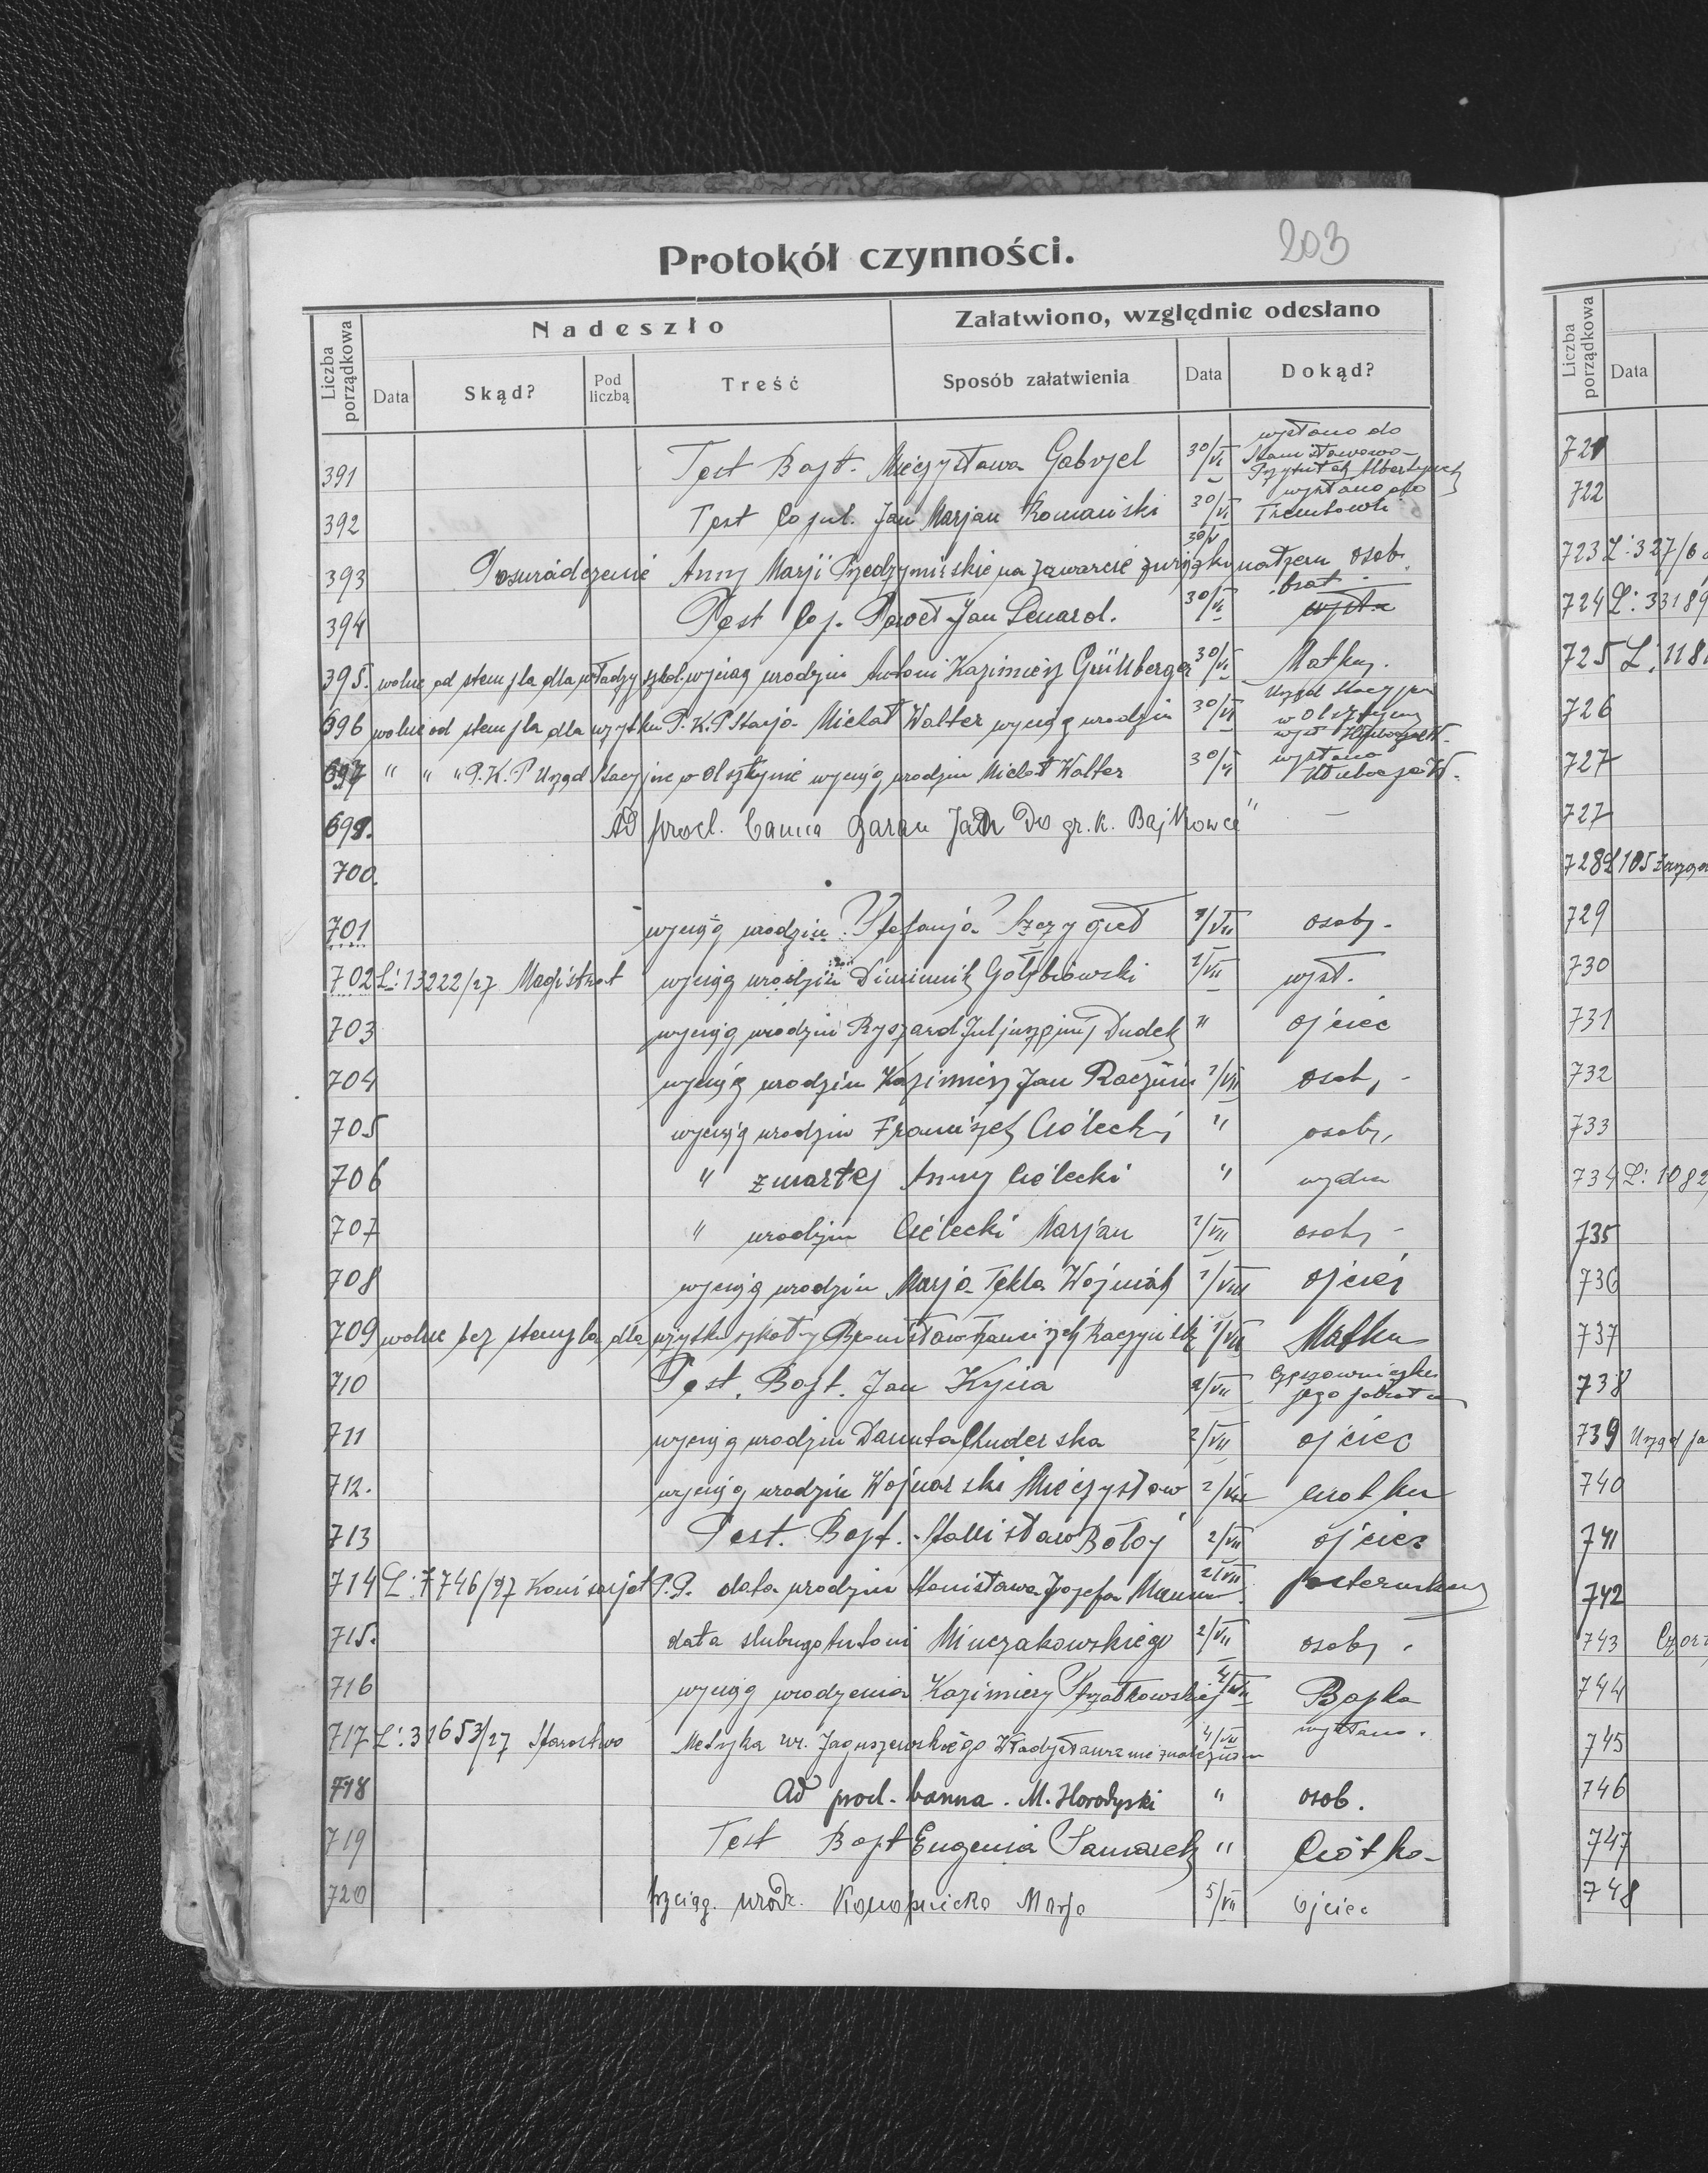 203
Protokół czynności.
Liczba porządkowa
Nadeszło
Załatwiono, względnie odesłano
Data
Skąd?
Pod liczbą
Treść
Sposób załatwienia
Data
Dokąd?
391 Test Bapt. Mieczysława Gabryel 30/VI wysłano do
392 Test Copul. Jan Marjan Romański 30/VI wysłano do Trembowli
30/VI
393 Poświadczenie Anny Marji na zawarcie osob.
394 Test Cop. Paweł Jan Lenard. 30/VI brat
395. wolne od stempla dla władzy szkol. wyciąg urodzin Antoni Kazimierz Grünberger 30/VI Matky.
696 wolne od stempla dla użytku P.K.P Stacja Michał Walter wyciąg urodzin 30/VI Urząd Stacyjny w Olsztynie
697 " " " P.K.P Urząd Stacyjne w Olsztynie wyciąg urodzin Michał Walter 30/VI wysłano
698. Ad procl. Canna Baran Jan Do gr. k. Bajkowce " —
700.
701 wyciąg urodzin Stefanja 1/VII osoby.
702 L: 13222/27 Magistrat wyciąg urodzin Diminik Gołębiowski 1/VII wysł.
703 wyciąg urodzin Ryszard Juljusz Dudek " ojciec
704 wyciąg urodzin Kazimierz Jan 1/VII osob, -
705 wyciąg urodzin Franciszek Ciólecki " osoby,
706 " zmarłej Anny Ciólecki "
707 " urodzin Ciélecki Marjan 1/VII osoby -
708 wyciąg urodzin Marja Tekla Woźniak 1/VII ojciec
709 wolne bez stempla dla użytku szkoły Bronisław Franciszek 1/VII Matka
710 Test. Bapt. Jan Kycia 2/VII
711 wyciąg urodzin Danuta Chuderska 2/VII ojciec
712. wyciąg urodzin Wojnarski Mieczysław 2/VII ciotka
713 Test. Bapt. Stanisław Bołoj 2/VII ojciec
714 L: 7746/27 Komisarjat P.P. data urodzin Stanisława Jozefa 2/VII
715. data slubu Antoni Minczakowskiego 2/VII osoby.
716 wyciąg urodzenia Kazimiery Strzałkowskiej 4/VII Bapka
717 L: 31653/27 Starostwo Metryka ur. Jaguszewskiego Władysława nie znaleziono 4/VII wysłano.
718 Ad procl. Canna. M. Horodyski " osob.
719 Test Bapt Eugenia " Ciotka-
720 Wyciąg. urodz. Konopnicka Marja 5/VII ojciec
Liczba porządkowa
Data
721
722
723 L: 327/
724 L: 33189
725 L: 118
726
727
727
728 L 105
729
730
731
732
733
734 L: 1082
735
736
737
738
739 Urząd
740
741
742
743
744
745
746
747
748